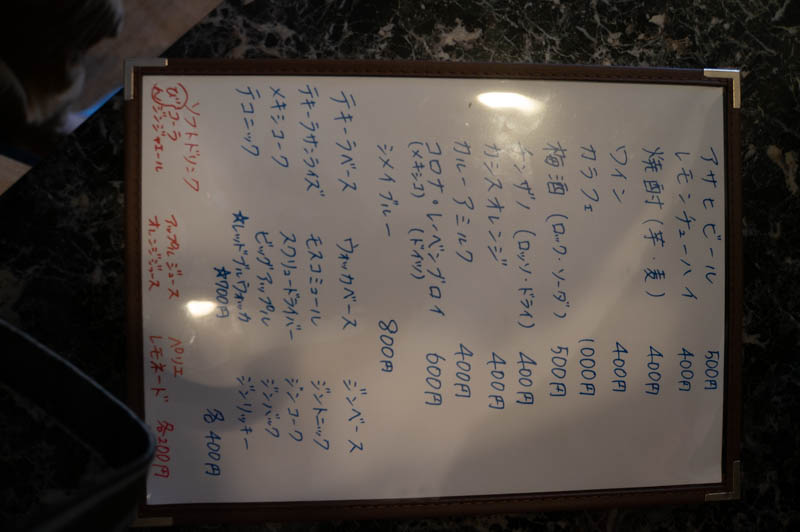 アサヒビール 500円
レモンチューハイ 400円
焼酎(芋・麦) 400円
ワイン 400円
カラフェ 1000円
梅酒(ロック・ソーダ) 500円
チンザノ(ロッソ・ドライ) 400円
カシスオレンジ 400円
カルーアミルク 400円
コロナ・レーベンブロイ 600円
(メキシコ) (ドイツ)
シメイブルー 800円
テキーラベース ウォッカベース ジンベース
テキーラサンライズ モスコミュール ジントニック
メキシコーク スクリュードライバー ジンコーク
テコニック ビッグアップル ジンバック
★レッドブルウォッカ ジンリッキー
★700円 各400円
ソフトドリンク アップルジュース ペリエ
コーラ オレンジジュース レモネード 各200円
ジンジャエール